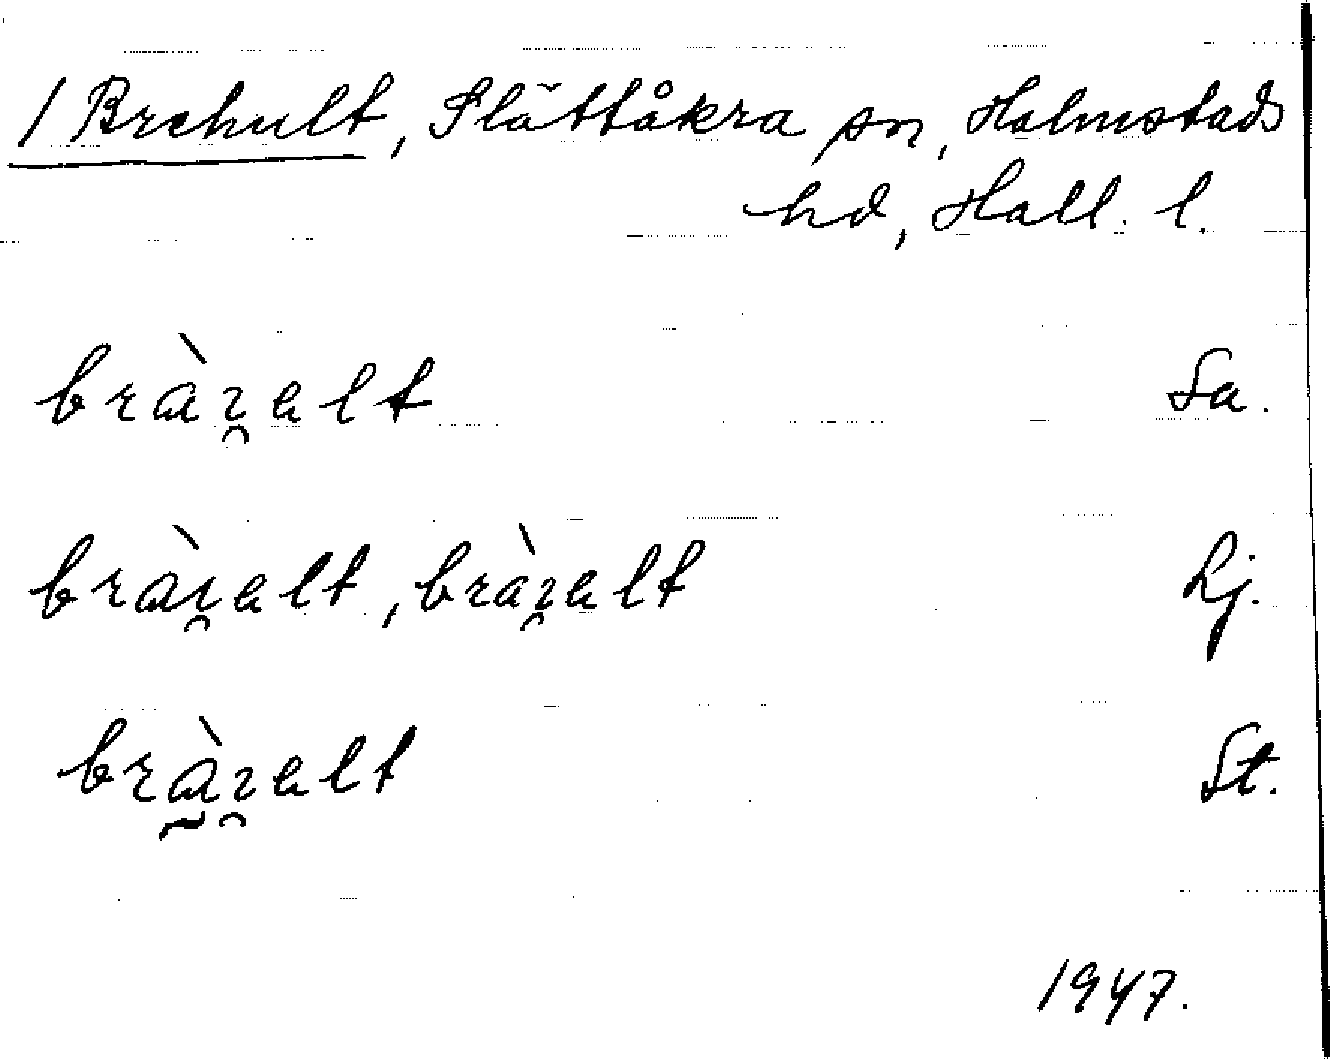 / Brehult, Slättåkra sn, Halmstads
hd, Hall. l.
bràɀ̯alt Sa.
bràɀ̯alt, bràɀ̯alt Lj.
brà̰ɀ̯alt St.
1947.